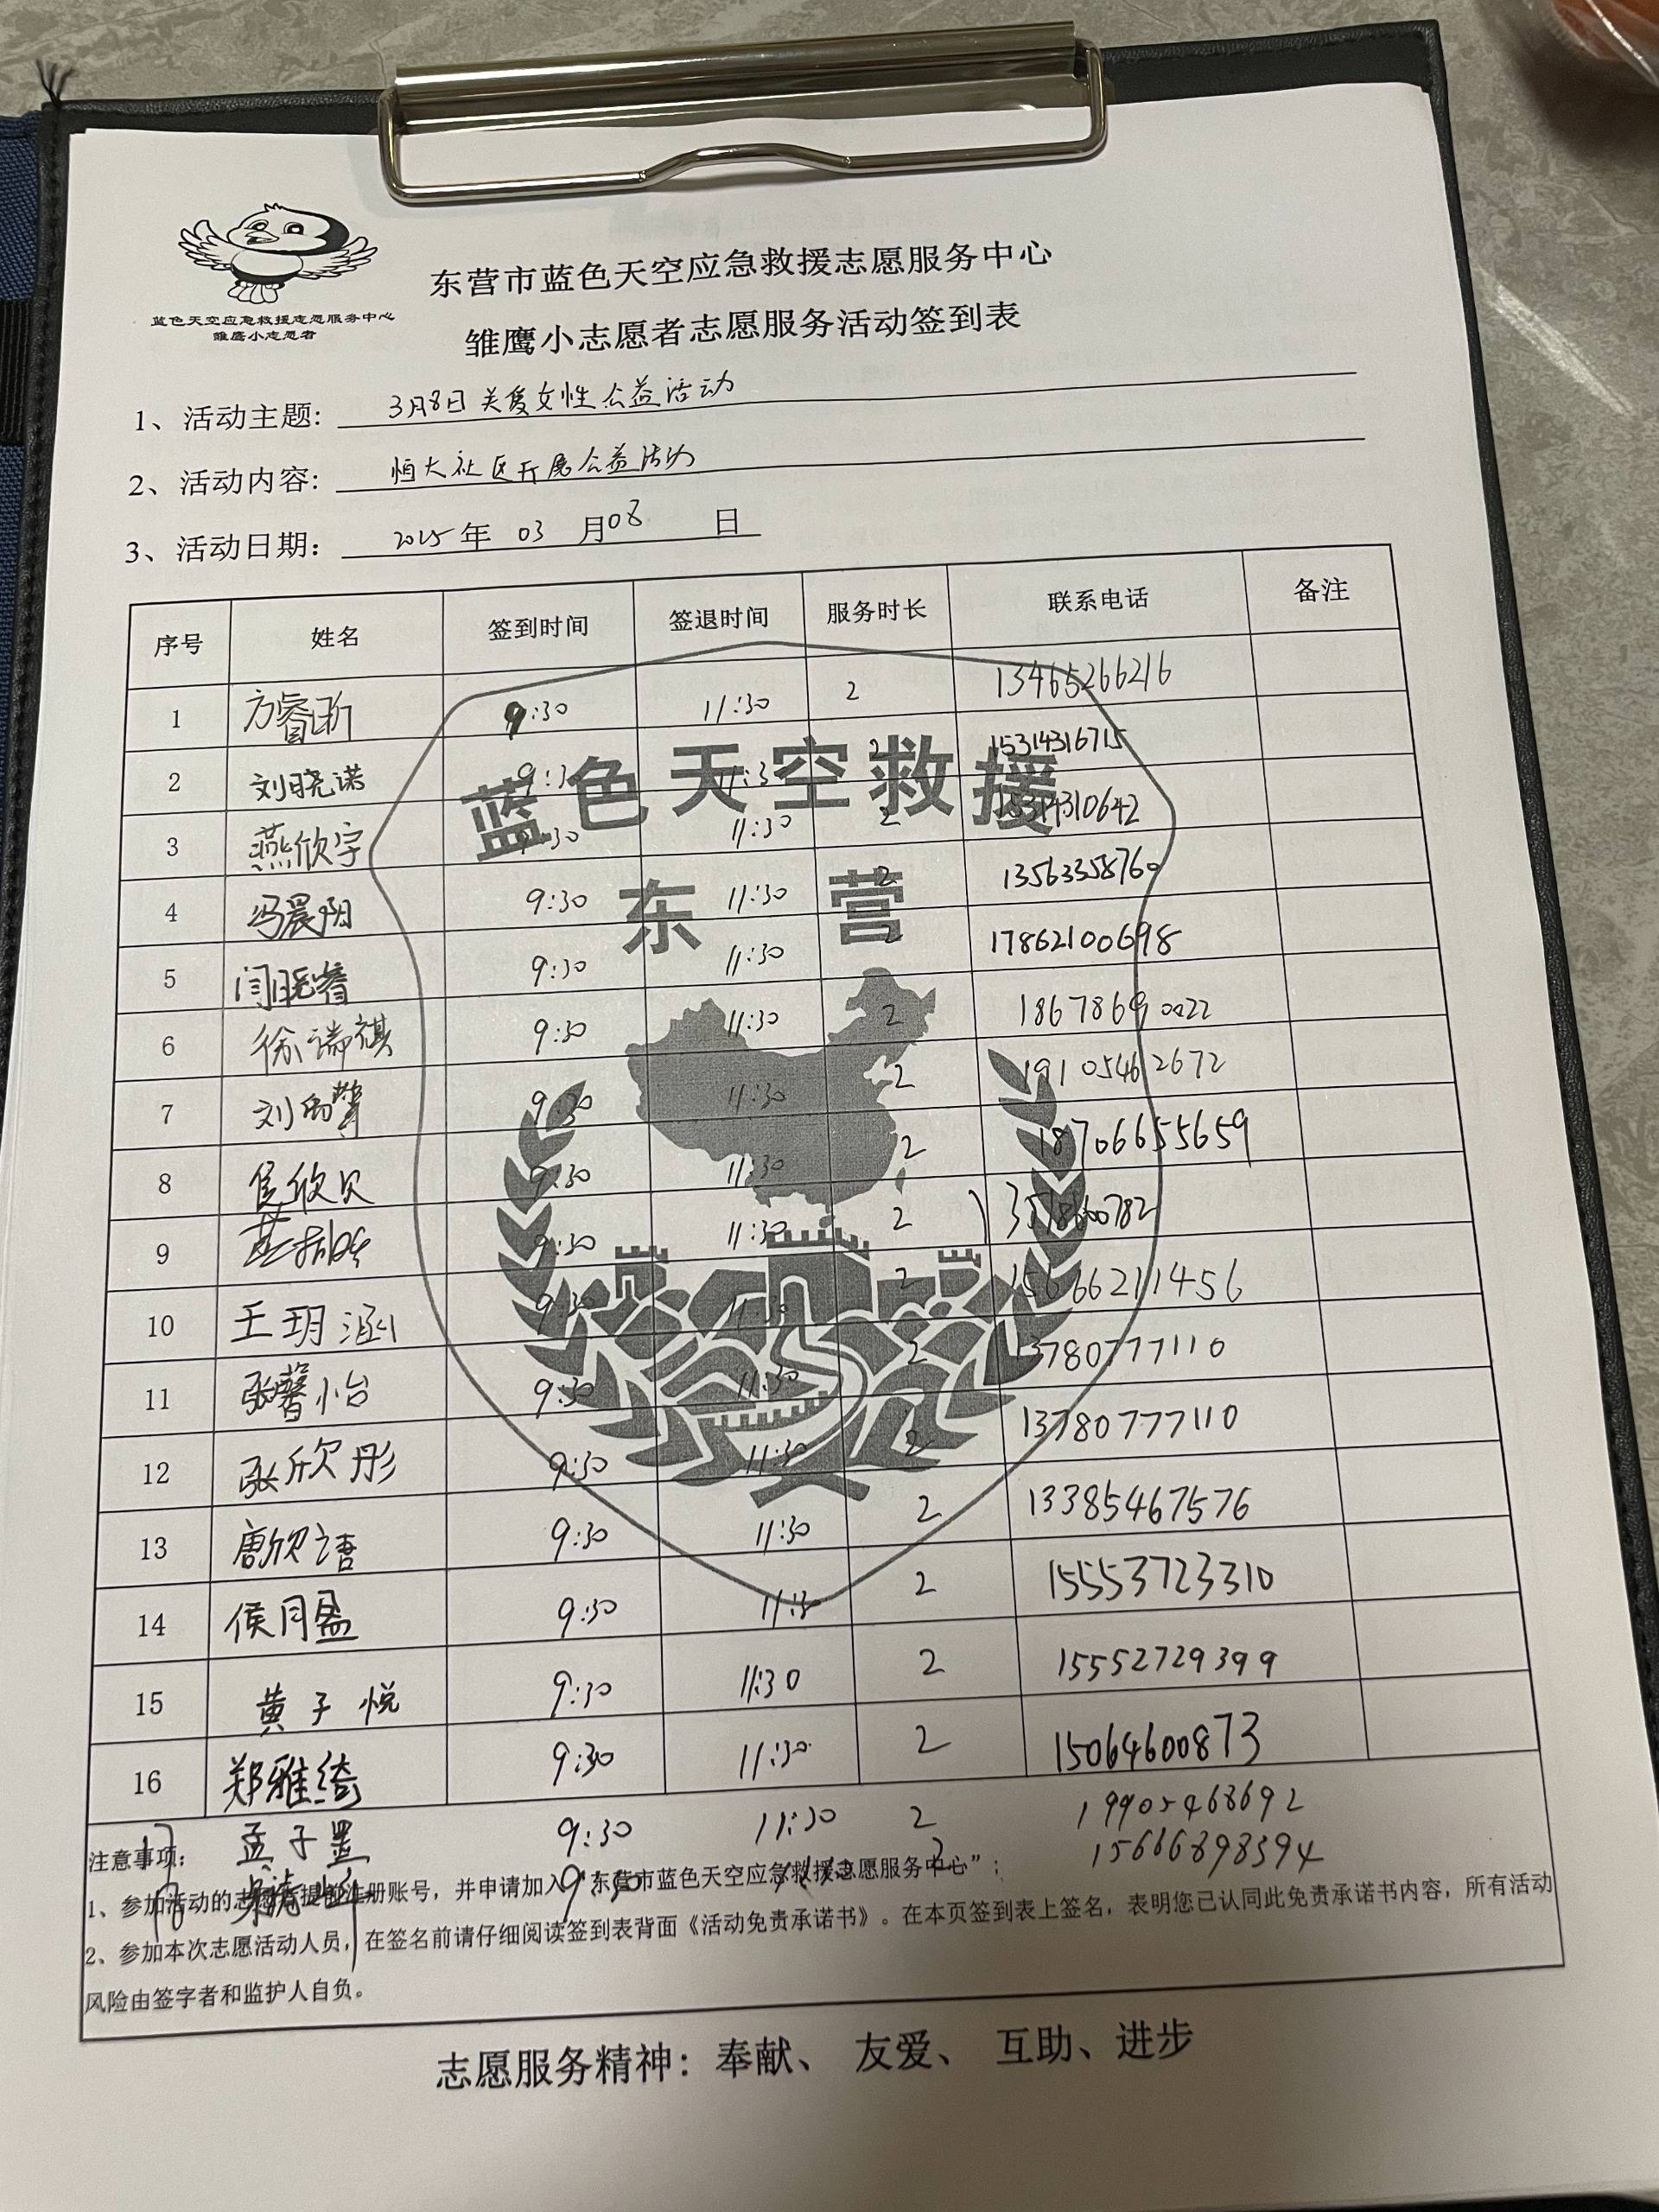 蓝色天空应急救援志愿服务中心
雏鹰小志愿者
东营市蓝色天空应急救援志愿服务中心
雏鹰小志愿者志愿服务活动签到表
1、活动主题: 3月8日关爱女性公益活动
2、活动内容: 恒大社区开展公益活动
3、活动日期: 2025年 03 月08 日
序号 姓名 签到时间 签退时间 服务时长 联系电话 备注
1 方睿昕 9:30 11:30 2 13465266216
2 刘晓诺 9:30 11:30 2 15314316715
3 燕欣宇 9:30 11:30 2 15314310642
4 冯晨阳 9:30 11:30 2 13563358760
5 闫晓睿 9:30 11:30 2 17862100698
6 徐瑞祺 9:30 11:30 2 18678690022
7 刘雨馨 9:30 11:30 2 19105462672
8 侯欣贝 9:30 11:30 2 18706655659
9 9:30 11:30 2
10 王玥涵 9:30 11:30 2 15666211456
11 张馨怡 9:30 11:30 2 13780777110
12 张欣彤 9:30 11:30 2 13780777110
13 唐欣语 9:30 11:30 2 13385467576
14 侯月盈 9:30 11:30 2 15553723310
15 黄子悦 9:30 11:30 2 15552729399
16 郑雅绮 9:30 11:30 2 15064600873
17 孟子墨 9:30 11:30 2 19905468692
18 9:30 11:30 2 15666898594
蓝色天空救援
东营
注意事项:
1、参加活动的志愿者提前注册账号，并申请加入“东营市蓝色天空应急救援志愿服务中心”；
2、参加本次志愿活动人员，在签名前请仔细阅读签到表背面《活动免责承诺书》。在本页签到表上签名，表明您已认同此免责承诺书内容，所有活动
风险由签字者和监护人自负。
志愿服务精神：奉献、 友爱、 互助、进步